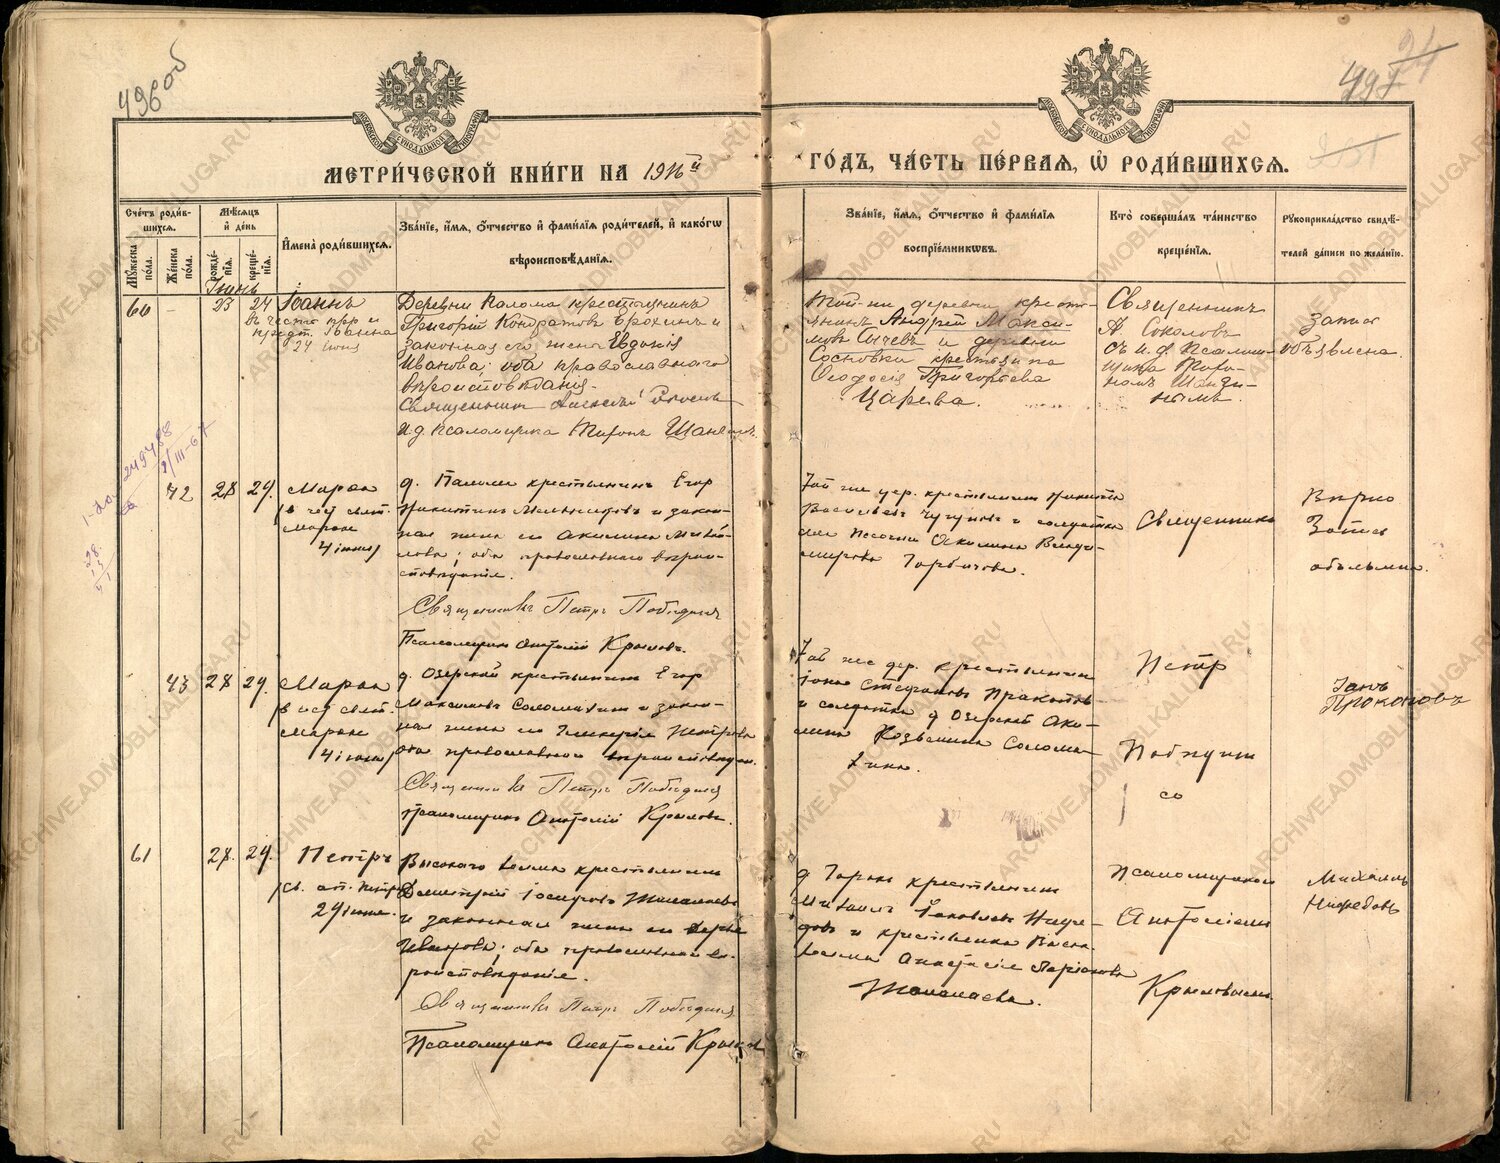 496об
497
24
МЕТРИ́ЧЕСКОЙ КНИ́ГИ НА 1916й
ГО́ДЪ, ЧА́СТЬ ПЕ́РВАЯ, Ѡ҆ РОДИ́ВШИХСЯ.
Сче́тъ роди́в-
шихся.
Му́жеска по́ла.
Же́нска по́ла.
Мѣ́сяцъ и҆ де́нь
рожде́-
нія.
креще́-
нія.
И҆мена̀ роди́вшихся.
Зва́ніе, и҆́мя, ѻ҆́тчество и҆ фами́лія роди́телей, и҆ како́гѡ
вѣроисповѣ́данія.
Зва́ніе, и҆́мя, ѻ҆́тчество и҆ фами́лія
воспрїе́мникѡвъ.
Кто̀ соверша́лъ та́инство
креще́нія.
Рукоприкла́дство свидѣ́-
телей за́писи по жела́нію.
Іюнь
60
23
24
Іоаннъ
24 іюня
Деревни Палома крестьянинъ
Григорій Кондратовъ Ерохинъ и
законная его жена Евдокія
Иванова; оба православнаго
вѣроисповѣданія.
Священникъ Алексѣй Соколовъ
и.д. псаломщика Тихонъ Шанинъ
Той-же деревни кресть-
янинъ Андрей Макси-
мовъ Сычевъ и деревни
Сосновки крестьянка
Ѳеодосія Григорьева
Царева.
Священникъ
А. Соколовъ
съ и.д. псалом-
щика Тихо-
номъ Шани-
нымъ.
Запись
объявлена.
42
28
29.
Марѳа
Марѳы
4 іюня)
крестьянинъ Егоръ
Никитинъ
и закон-
ная жена его Акилина Михай-
лова; оба православнаго вѣрои-
сповѣданія.
Священникъ Петръ Побѣдинъ
Псаломщикъ Анатолій Крыловъ.
Той же дер. крестьянинъ Никита
Васильевъ Чугуновъ и солдатка
Акилина Влади-
мирова Горбачова.
Священникъ
Вѣрно
Запись
объявлена.
43
28
29.
Марѳа
Марѳы
4 іюня)
д. Озерской крестьянинъ Егоръ
Максимовъ Соломахинъ и закон-
ная жена его Гликерія Петрова
оба православнаго вѣроисповѣдан.
Священникъ Петръ Побѣдинъ
Псаломщикъ Анатолій Крыловъ.
Той же дер. крестьянинъ
Іона Стефановъ Прокоповъ
и солдатка д. Озерской Аку-
лина Козьмина Солома-
хина.
Петръ
Побѣдинъ
со
Іонъ
Прокоповъ
61
28.
29.
Петръ
(св. ап. Петра
29 іюня.
Высокаго Холма крестьянинъ
Димитрій Іосифовъ
и законная жена его Дарья
Иванова; оба православнаго вѣ-
роисповѣданія.
Священникъ Петръ Побѣдинъ
Псаломщикъ Анатолій Крыловъ
крестьянинъ
Михаилъ Яковлевъ Нефе-
довъ и крестьянка Высок.
Холма Анастасія Ларіонова
Псаломщикомъ
Анатоліемъ
Крыловымъ.
Михаилъ
Нефедовъ
ARCHIVE.ADMOBLKALUGA.RU